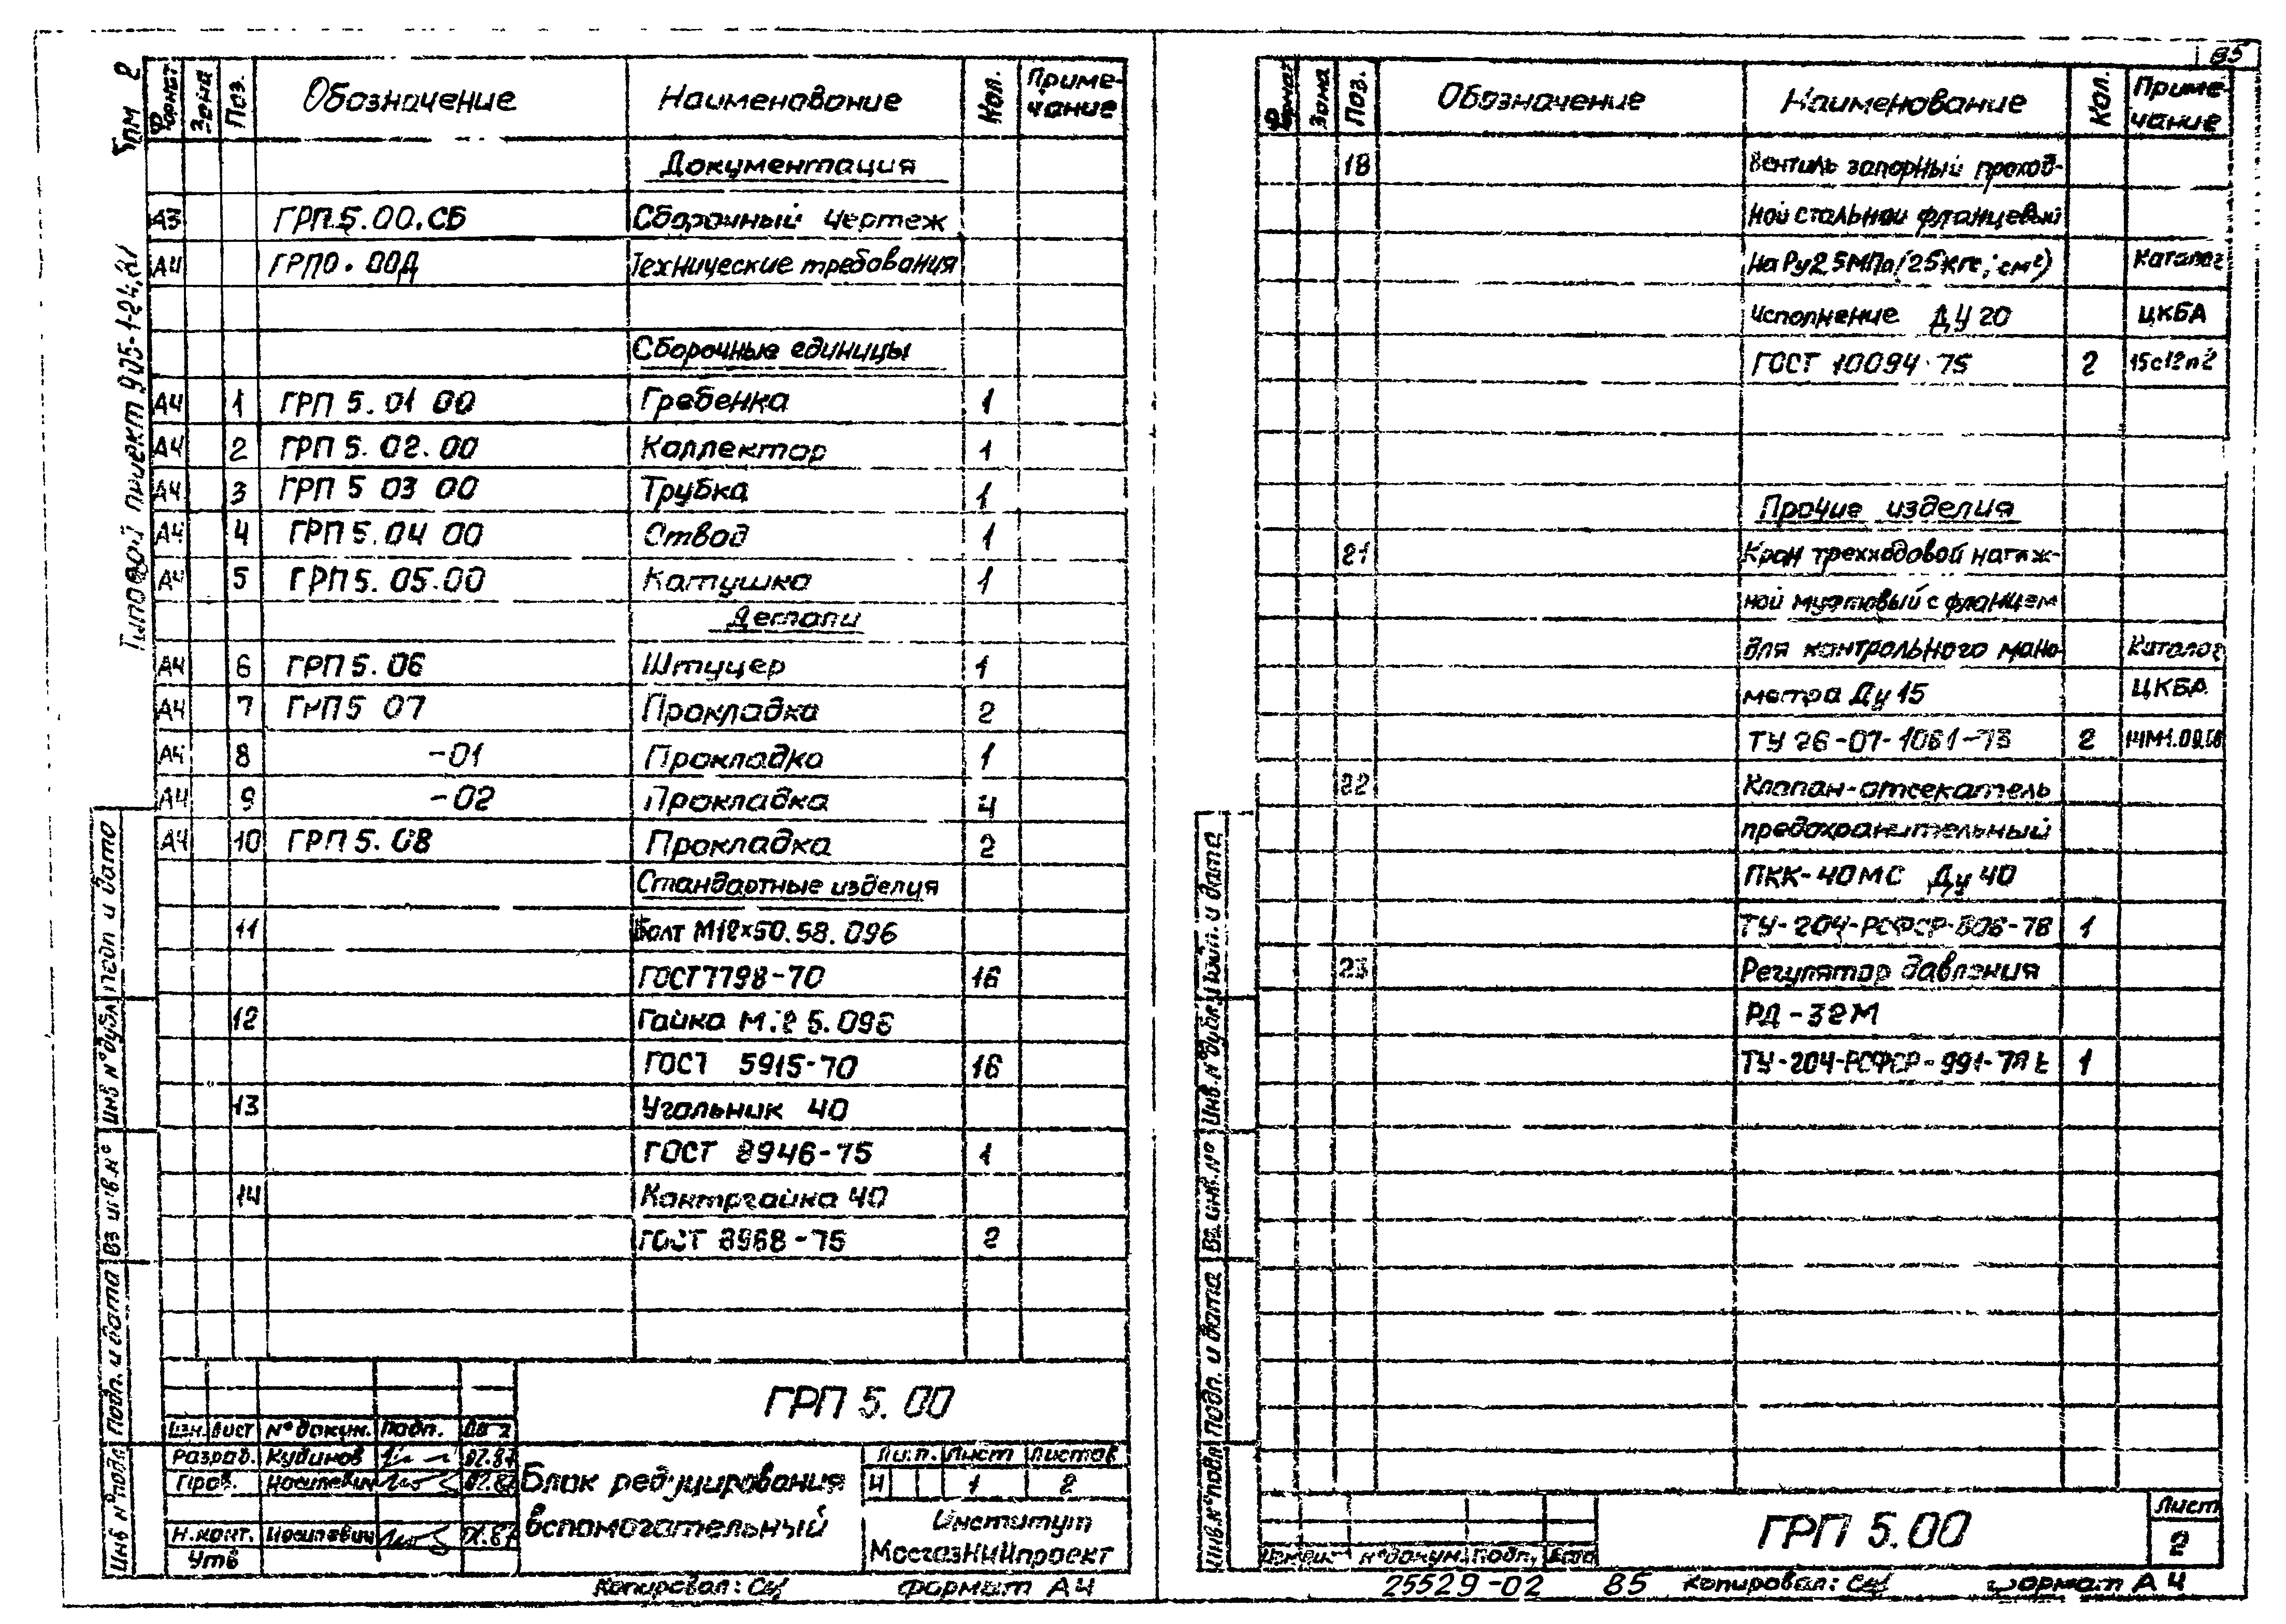 Типовой проект 905-1-24.87
85
Формат Зона Поз. Обозначение Наименование Кол. Примечание
Документация
А3 ГРП.5.00.СБ Сборочный чертеж
А4 ГРП0.00Д Технические требования
Сборочные единицы
А4 1 ГРП 5.01 00 Гребенка 1
А4 2 ГРП 5.02.00 Коллектор 1
А4 3 ГРП 5 03 00 Трубка 1
А4 4 ГРП 5.04 00 Отвод 1
А4 5 ГРП 5.05.00 Катушка 1
Детали
А4 6 ГРП 5.06 Штуцер 1
А4 7 ГРП 5 07 Прокладка 2
А4 8 -01 Прокладка 1
А4 9 -02 Прокладка 4
А4 10 ГРП 5.08 Прокладка 2
Стандартные изделия
11 Болт М12х50.58.096
ГОСТ 7798-70 16
12 Гайка М12 5.096
ГОСТ 5915-70 16
13 Угольник 40
ГОСТ 8946-75 1
14 Контргайка 40
ГОСТ 8968-75 2
Инв № подл Подп. и дата Вз инв.№ Инв №дубл Подп и дата
ГРП 5.00
Изм. Лист № докум. Подп.
Разраб. Кудинов 02.87
Пров. Иосилевич 02.87
Н.конт. Иосилевич
Утв
Блок редуцирования
вспомогательный
Лит. Лист Листов
И 1 2
Институт
МосгазНИИпроект
Копировал: Формат А4
Формат Зона Поз. Обозначение Наименование Кол. Примечание
18 Вентиль запорный проход-
ной стальной фланцевый
На Ру2,5МПа(25кгс/см²) Каталог
Исполнение ДУ 20 ЦКБА
ГОСТ 10094-75 2
Прочие изделия
21 Кран трехходовой натяж-
ной муфтовый с фланцем
для контрольного мано- Каталог
метра Ду 15 ЦКБА
ТУ 26-07-1061-73 2
22 Клапан-отсекатель
предохранительный
ПКК-40МС Ду 40
1
23 Регулятор давления
РД-32М
1
Инв.№подл Подп. и дата Вз инв.№ Инв.№дубл Подп. и дата
№ докум. Подп. Дата
ГРП 5.00
Лист
2
25529-02 85 Копировал: Формат А4